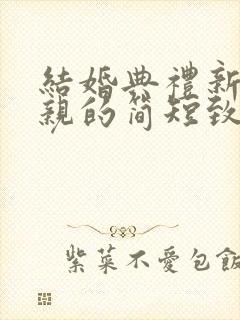 結婚典禮新
親的简短致
紫菜不愛包飯